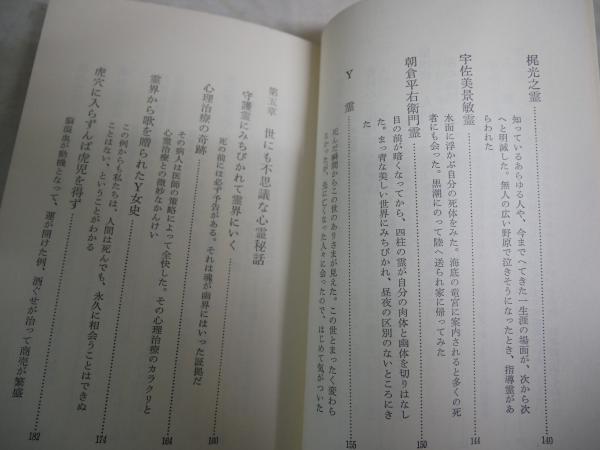 梶光之霊
知っているあらゆる人や、今までへてきた一生涯の場面が、次から次
へと明滅した。無人の広い野原で泣きそうになったとき、指導霊があ
らわれた……140
宇佐美景敏霊
水面に浮かぶ自分の死体をみた。海底の竜宮に案内されると多くの死
者にも会った。黒潮にのって陸へ送られ家に帰ってみた……144
朝倉平右衛門霊
目の前が暗くなってから、四柱の霊が自分の肉体と幽体を切りはなし
た。まっ青な美しい世界にみちびかれ、昼夜の区別のないところにき
た……150
Y霊
死んだ瞬間からこの世のありさまが見えた。この世とまったく変わら
なかったが、先に亡くなった人々に会ったので、はじめて気がついた
……155
第五章 世にも不思議な心霊秘話
守護霊にみちびかれて霊界にいく
死の前には必ず予告がある。それは魂が幽界にはいった証拠だ……160
心理治療の奇跡
その病人は医師の策略によって全快した。その心理治療のカラクリと
心霊治療との微妙なかんけい……164
霊界から歌を贈られたY女史
この例からも私たちは、人間は死んでも、永久に相会うことはできぬ
ことはない、ということがわかる……174
虎穴に入らずんば虎児を得ず
脳溢血が動機となって、運が開けた例、酒ぐせが治って商売が繁盛
……182